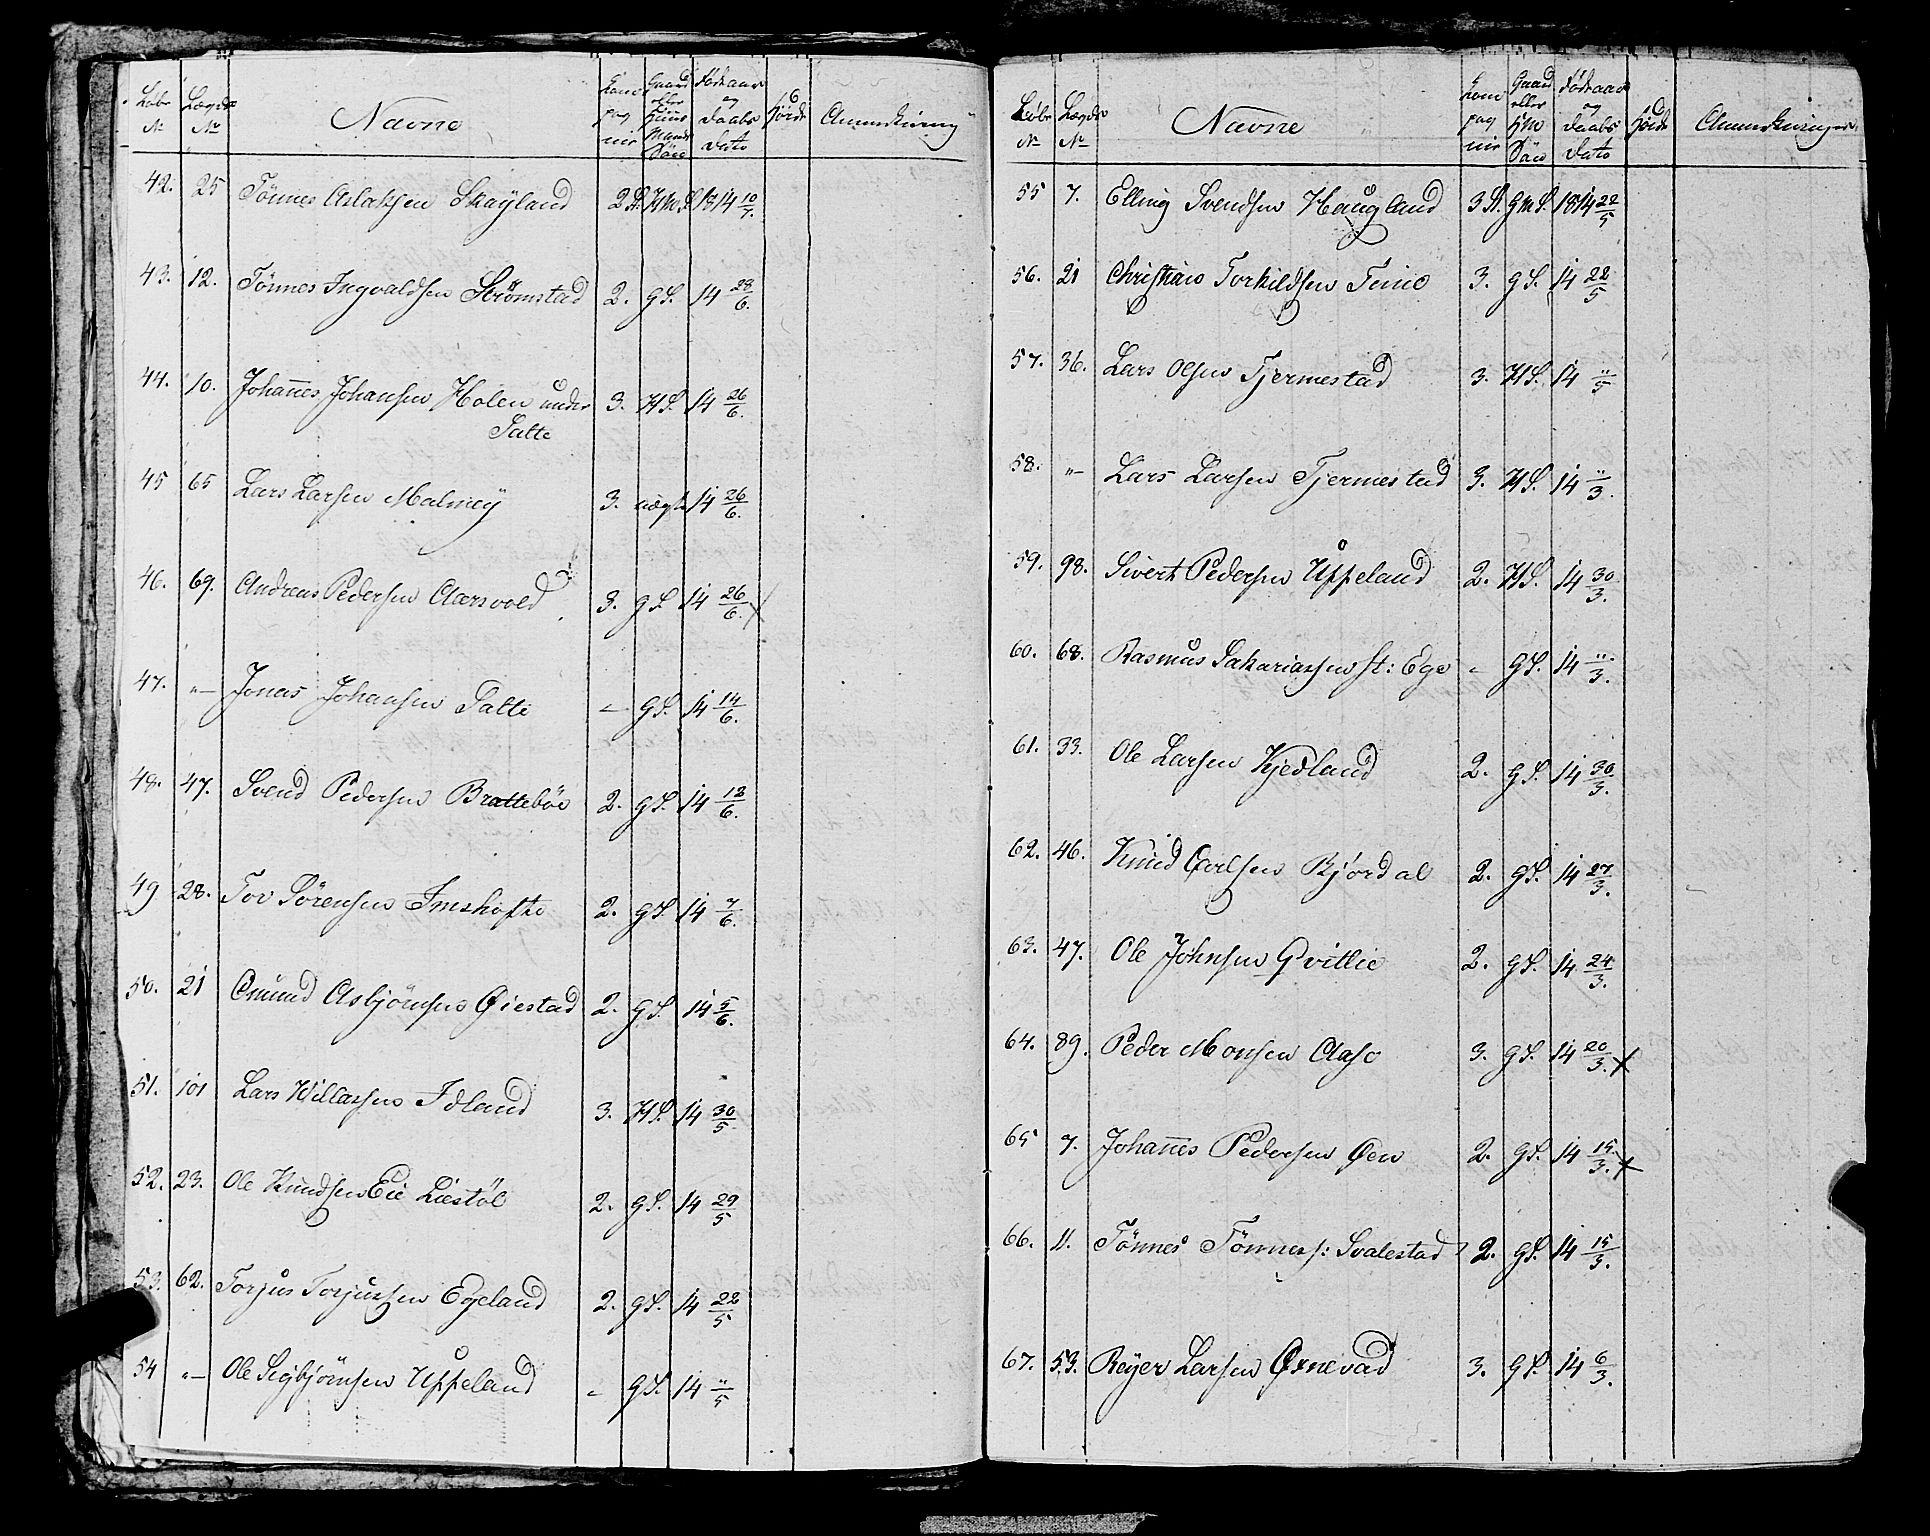 Løbe No | Lægds No | Navne | Kompagnie | Gaard eller Huus Mands Søn | Fødeaar og Daabs Dato | Hjørde | Anmerkning
42. 25 Tønnes Aslaksen Skayland 2 St. HmS. 1814 10/7.
43. 12. Tønnes Ingvaldsen Strømstad 2. gS. 14 28/6.
44. 10. Johannes Johansen Holen under 3. HS. 14 26/6.
Tatte
45 65 Lars Larsen Malmey 3. uægte 14 26/6.
46. 69. Andreas Pedersen Aarsvold 3. gS. 14 26/6. x
47. "— Jonas Johansen Tatte — gS. 14 14/6.
48. 47. Svend Pedersen Brattebøe 2. gS. 14 12/6.
49 28. Tov Sørensen Imshofte 2. gS. 14 7/6.
50. 21 Omund Asbjørnsen Øiestad 2. gS. 14 5/6.
51. 101 Lars Willassen Idland 3. HS. 14 30/5.
52. 23. Ole Knudsen Eie Liestøl 2. gS. 14 29/5
53. 62. Torjus Torjussen Egeland 2. gS. 14 22/5
54 "— Ole Sigbjørnsen Uppeland - gS. 14 "/5
Løbe No | Lægds No | Navne | Kompagnie | Gaard eller HM Søn | Fødeaar og Daabs Dato | Anmerkninger
55 7. Elling Svendsen Haugland 3 St. gmS. 1814 22/5
56. 21 Christian Torkildsen 3. gS. 14 22/5
57. 36. Lars Olsen Tjermestad 3. HS. 14 "/5
58. "— Lars Larsen Tjermestad 3. HS. 14 "/3.
59. 98. Sivert Pedersen Uppeland 2. HS. 14 30/3.
60. 68. Rasmus Sakariassen st: Ege - gS. 14 "/3.
61. 33. Ole Larsen Kjedland 2. gS. 14 30/3.
62. 46. Knud Carlsen Bjordal 2. gS. 14 27/3.
63. 47. Ole Johnsen Gvillie 2. gS. 14 24/3.
64. 89. Peder Monsen Aase 3. gS. 14 20/3. x
65 7. Johannes Pedersen Øen 2. gS. 14 15/3. x
66. 11. Tønnes Tønness: Svalestad 2. gS. 14 15/3.
67. 53. Reyer Larsen Ørnevad 3. gS. 14 6/3.